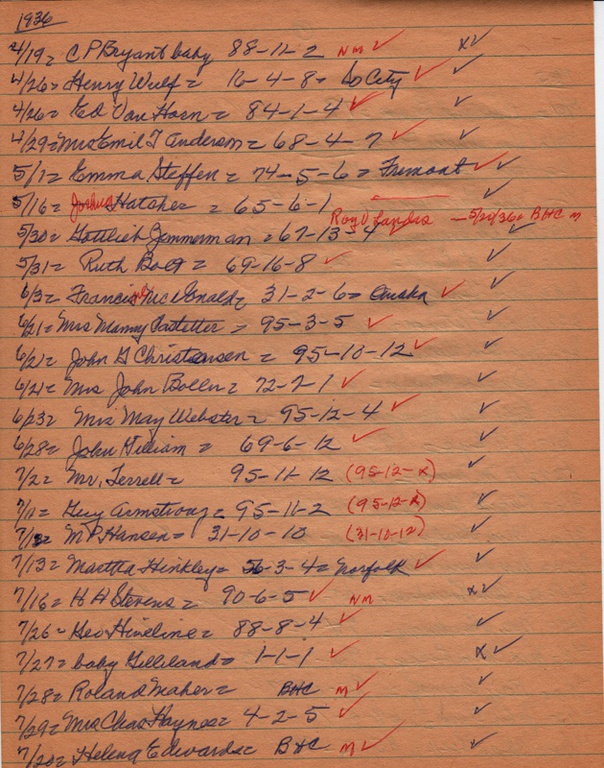 1936
4/19= C P Bryant baby 88-11-2 NM ✓ x✓
4/26= Henry Wulf= 16-4-8= So City ✓ ✓
4/26= Ed Van Horn= 84-1-4 ✓ ✓
4/29= Mrs Emil T Anderson= 68-4-7 ✓ ✓
5/1= Emma Steffen= 74-5-6= Fremont ✓ ✓
5/16= Joshua Hatcher = 65-6-1 ✓
Roy V Landis — 5/24/36= BHC M
5/30= Gottlieb Zimmerman =67-13-4 ✓
5/31= Ruth Bolt= 69-16-8 ✓ ✓
6/3= Francis McDonald= 31-2-6= Omaha ✓ ✓
6/21= Mrs Mammy Castetter= 95-3-5 ✓ ✓
6/21= John G Christensen = 95-10-12 ✓ ✓
6/21= Mrs John Boller= 72-7-1 ✓ ✓
6/23= Mrs May Webster= 95-12-4 ✓ ✓
6/28= John Gilliam = 69-6-12 ✓ ✓
7/2= Mr. Terrell= 95-11-12 (95-12-x) ✓
7/11= Guy Armstrong= 95-11-2 (95-12-x) ✓
7/12= M P Hansen= 31-10-10 (31-10-12) ✓
7/13= Martha Hinkley= 56-3-4= Norfolk ✓ ✓
7/16= H H Stevens= 90-6-5 ✓ NM x✓
7/26= Geo Hineline= 88-8-4 ✓ ✓
7/27= baby Gilliland= 1-1-1 ✓ x✓
7/28= Roland Maher= BHC M ✓ ✓
7/29= Mrs Chas Haynes= 4-2-5 ✓ ✓
7/20= Helena Edwards= BHC M ✓ ✓